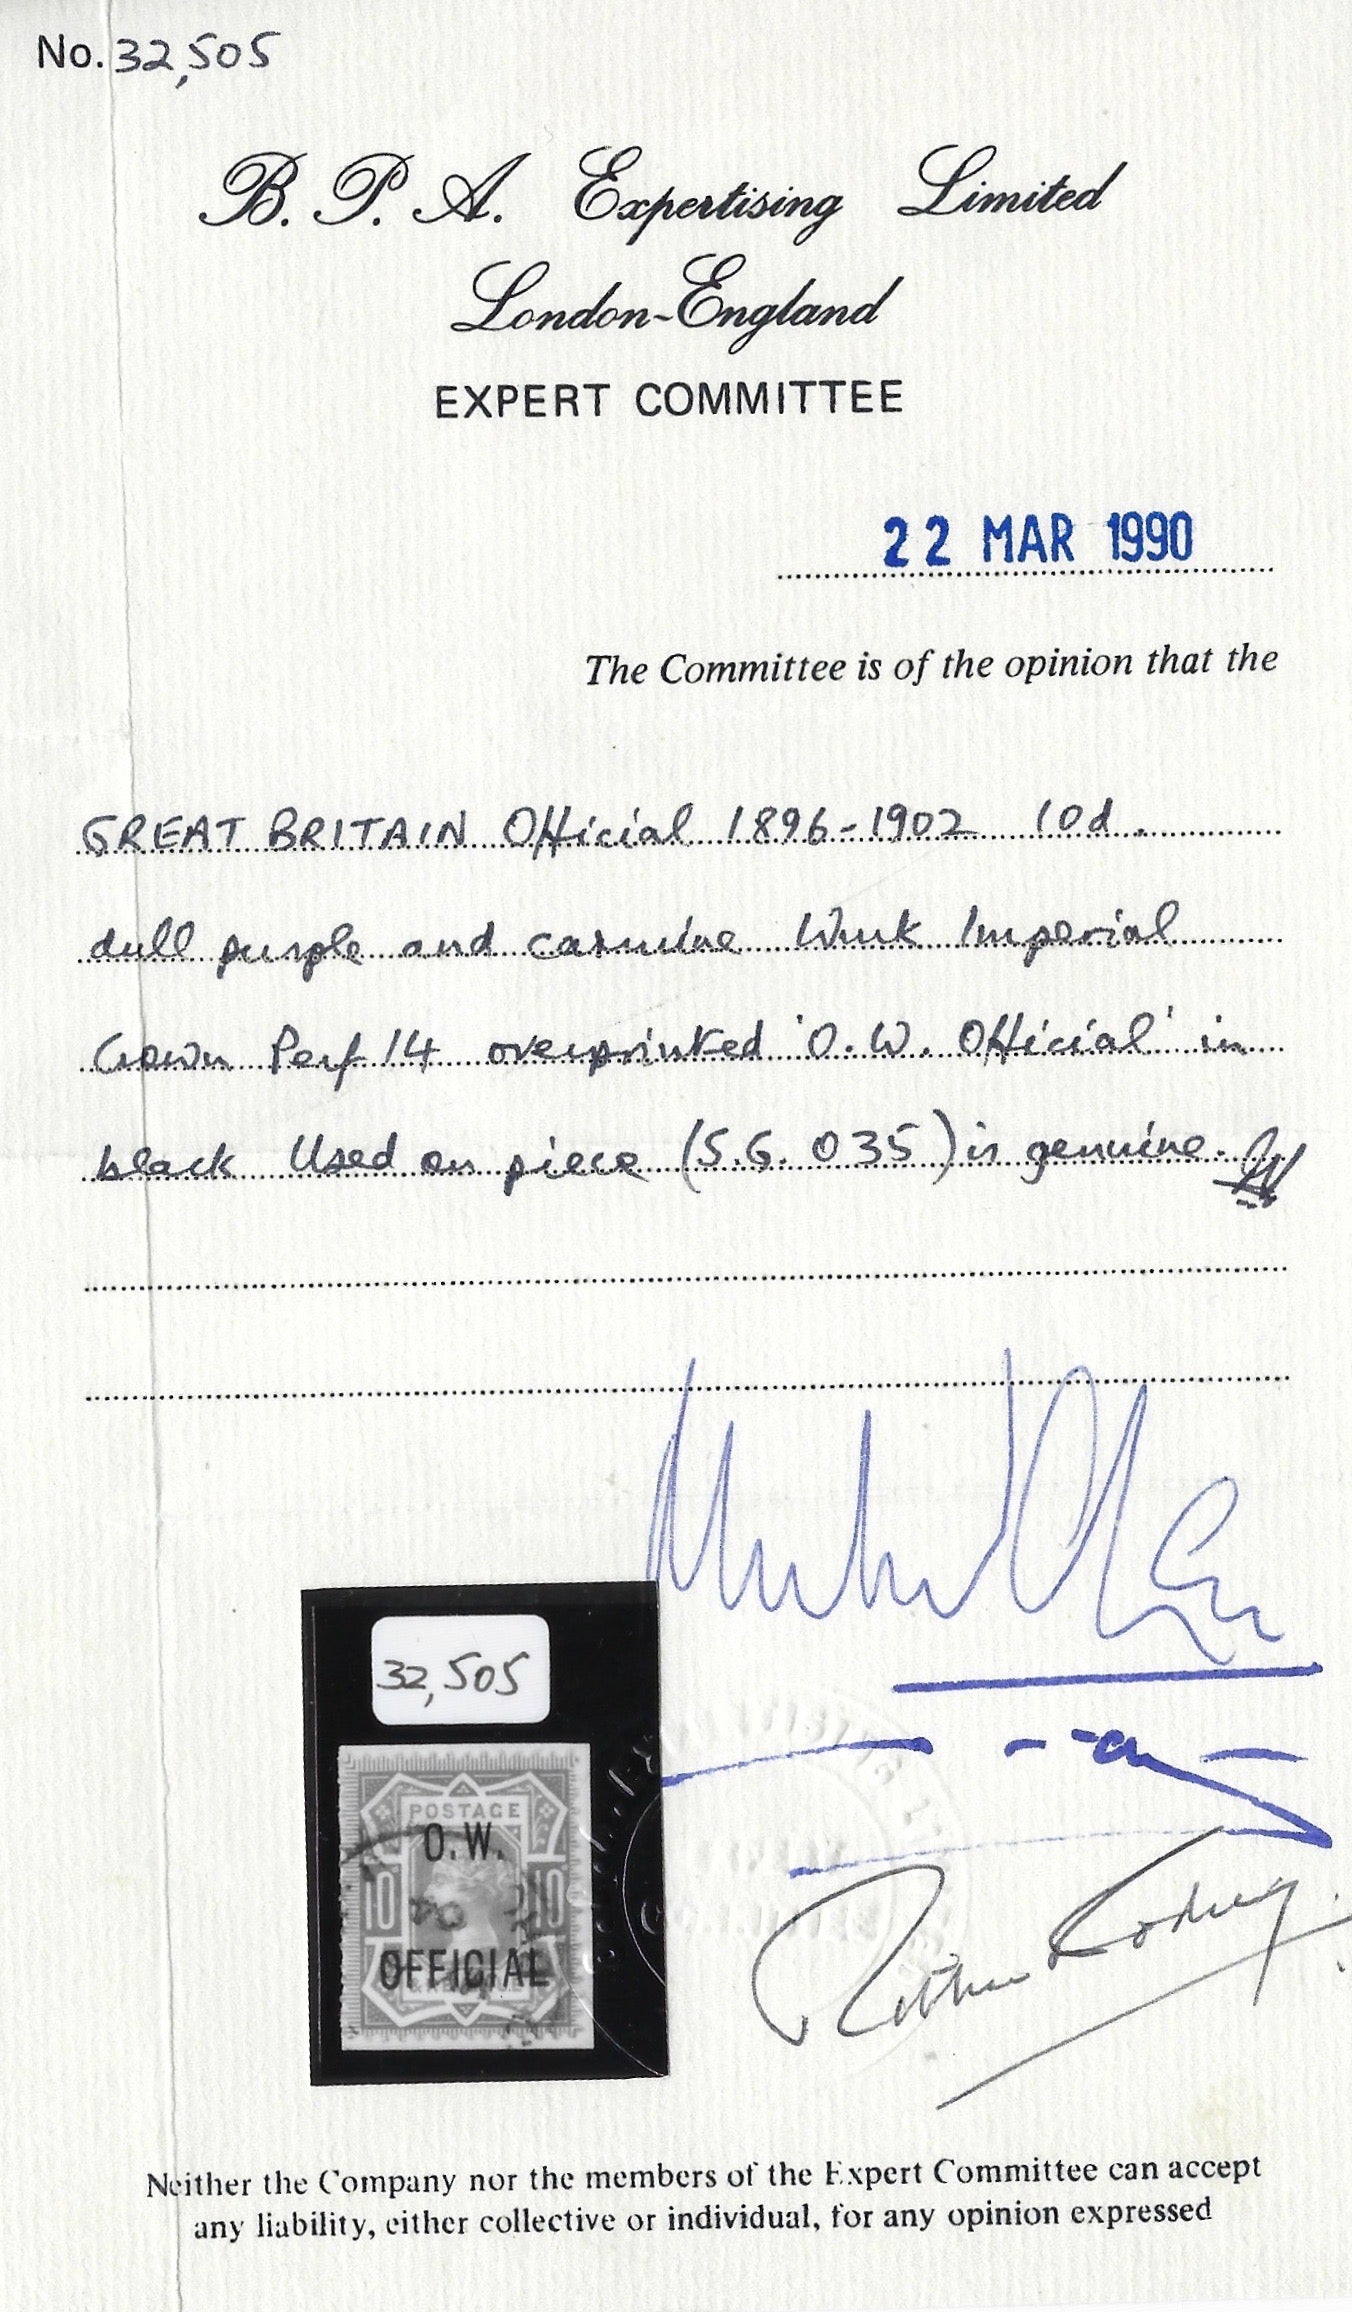 No. 32,505
B. P. A. Expertising Limited
London-England
EXPERT COMMITTEE
22 MAR 1990
The Committee is of the opinion that the
GREAT BRITAIN Official 1896-1902 10d.
dull purple and carmine Wmk Imperial
Crown Perf 14 overprinted 'O.W. Official' in
black Used on piece (S.G. O35) is genuine.
32,505
POSTAGE
O.W.
10 10
OFFICIAL
Neither the Company nor the members of the Expert Committee can accept
any liability, either collective or individual, for any opinion expressed